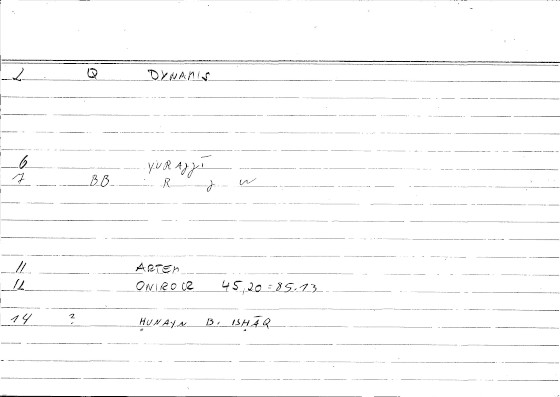 2 Q DYNAMIS
6 YURAǦǦĪ
7 BB R ǧ w
11 ARTEM
12 ONIROCR 45,20 = 85.13
14 ? ḤUNAYN B. ISḤĀQ